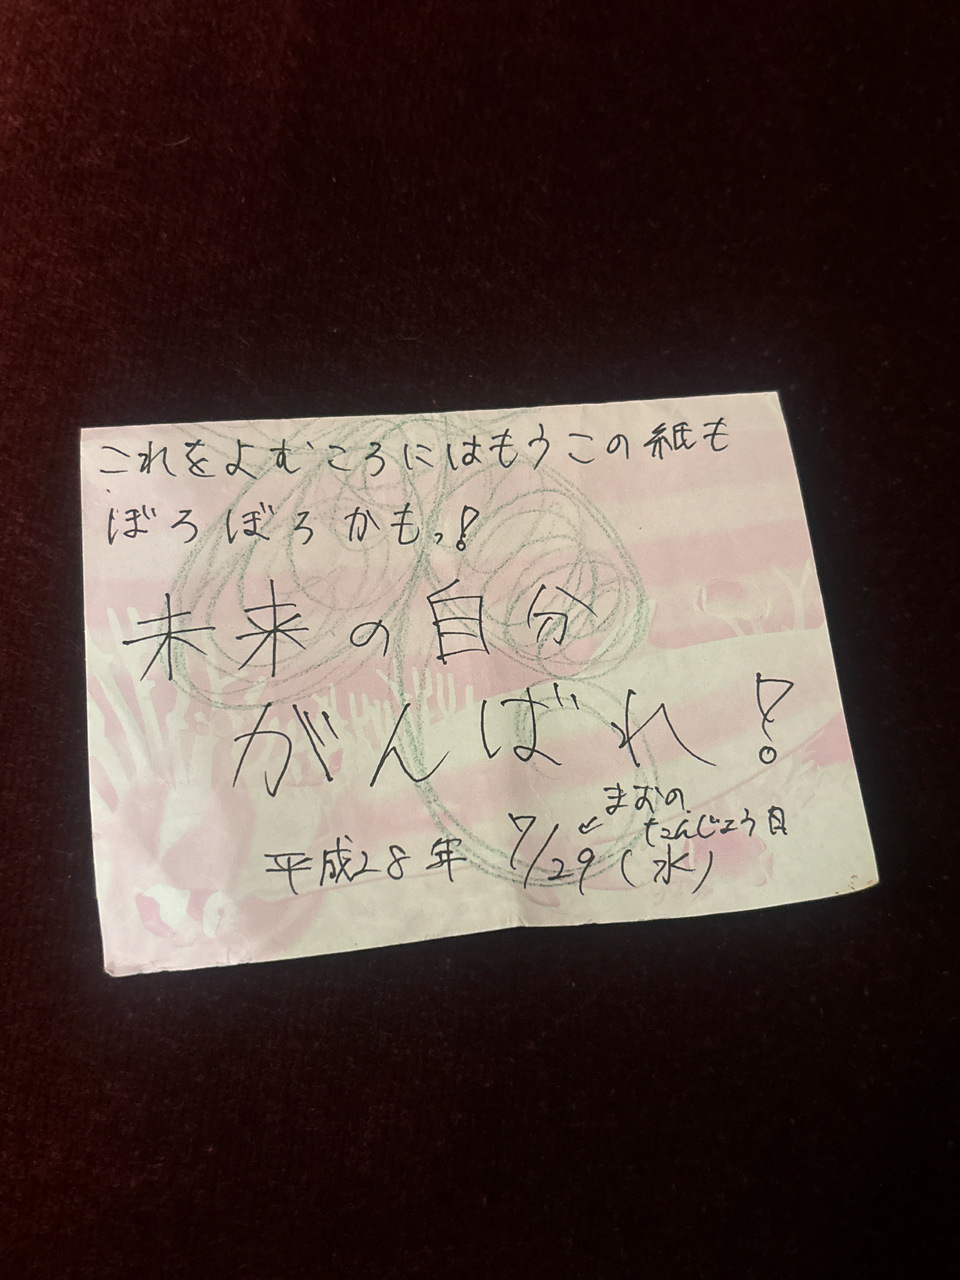 これをよむころにはもうこの紙も
ぼろぼろかもっ!
未来の自分
がんばれ!
まおの
たんじょう日
平成28年 7/29(水)